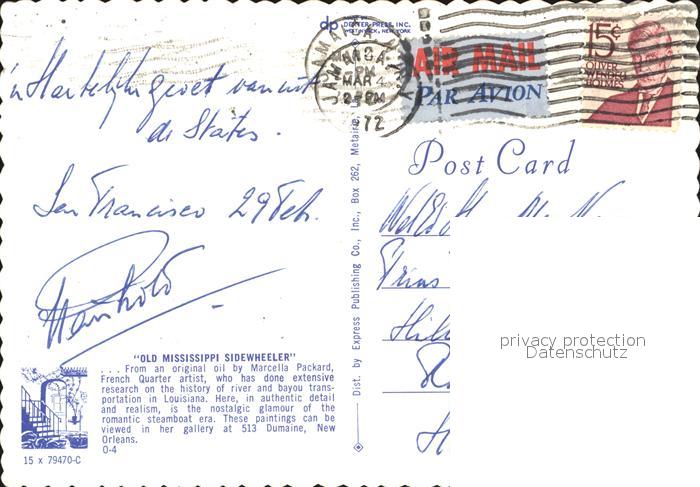 dp DEXTER PRESS, INC.
WEST NYACK, NEW YORK
JAMAICA
MAR 4
PM
72
AIR MAIL
PAR AVION
15¢
OLIVER
WENDELL
HOLMES
'n Hartelijk groet vanuit
de States.
San Francisco 29 Feb.
Post Card
Prins
Dist. by Express Publishing Co., Inc., Box 262, Metairie,
"OLD MISSISSIPPI SIDEWHEELER"
. . . From an original oil by Marcella Packard,
French Quarter artist, who has done extensive
research on the history of river and bayou trans-
portation in Louisiana. Here, in authentic detail
and realism, is the nostalgic glamour of the
romantic steamboat era. These paintings can be
viewed in her gallery at 513 Dumaine, New
Orleans.
O-4
15 x 79470-C
privacy protection
Datenschutz